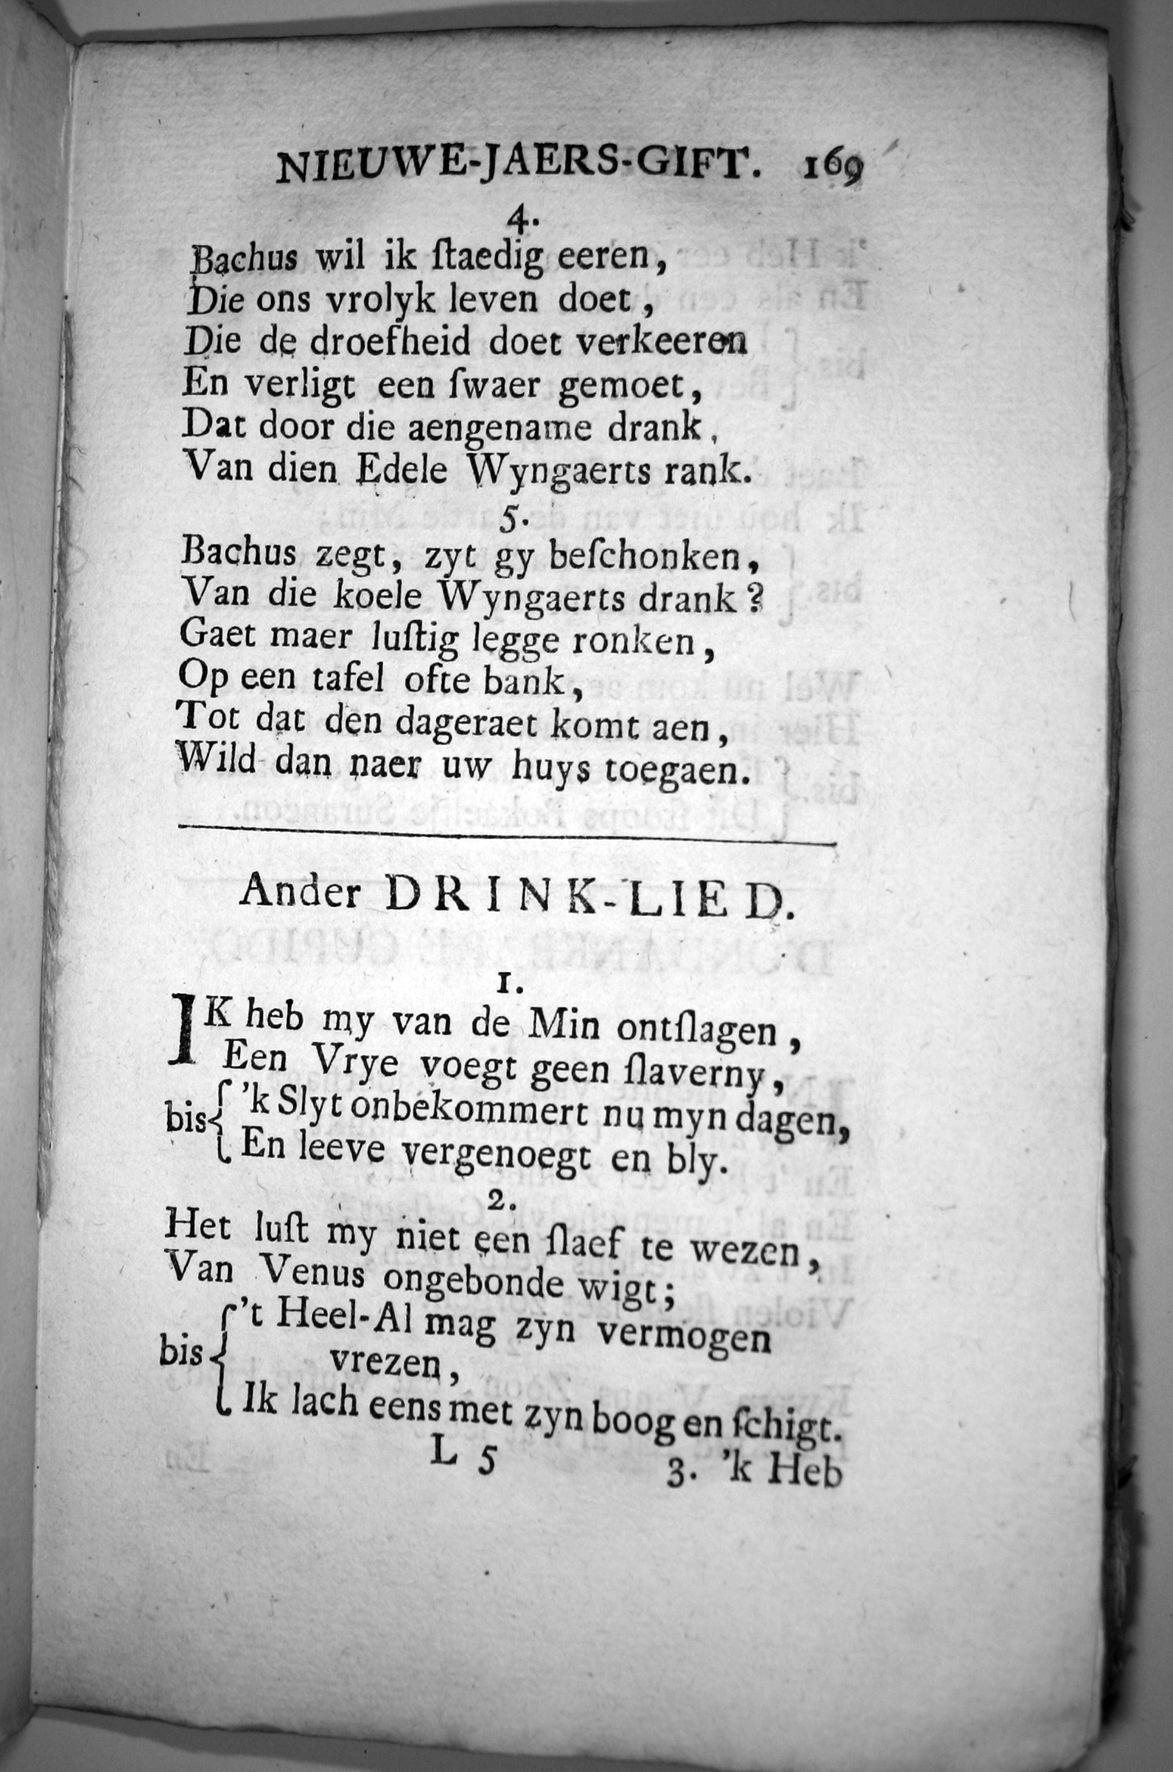 NIEUWE-JAERS-GIFT. 169
4.
Bachus wil ik ſtaedig eeren,
Die ons vrolyk leven doet,
Die de droefheid doet verkeeren
En verligt een ſwaer gemoet,
Dat door die aengename drank,
Van dien Edele Wyngaerts rank.
5.
Bachus zegt, zyt gy beſchonken,
Van die koele Wyngaerts drank?
Gaet maer luſtig legge ronken,
Op een tafel ofte bank,
Tot dat den dageraet komt aen,
Wild dan naer uw huys toegaen.
Ander DRINK-LIED.
1.
IK heb my van de Min ontſlagen,
Een Vrye voegt geen ſlaverny,
bis{ 'k Slyt onbekommert nu myn dagen,
En leeve vergenoegt en bly.
2.
Het luſt my niet een ſlaef te wezen,
Van Venus ongebonde wigt;
't Heel-Al mag zyn vermogen
bis{ vrezen,
Ik lach eens met zyn boog en ſchigt.
L 5 3. 'k Heb